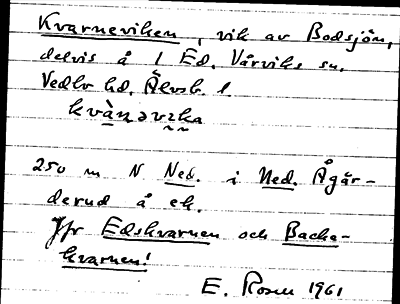 Kvarneviken, vik av Bodsjön,
delvis å 1 Ed. Vårviks sn.
Vedbo hd. Älvsb. l.
kvà̱ṉəvɪka
250 m N Ned. i Ned. Ågär-
derud å ek.
Jfr Edskvarnen och Backe-
kvarnen!
E. Rosen 1961